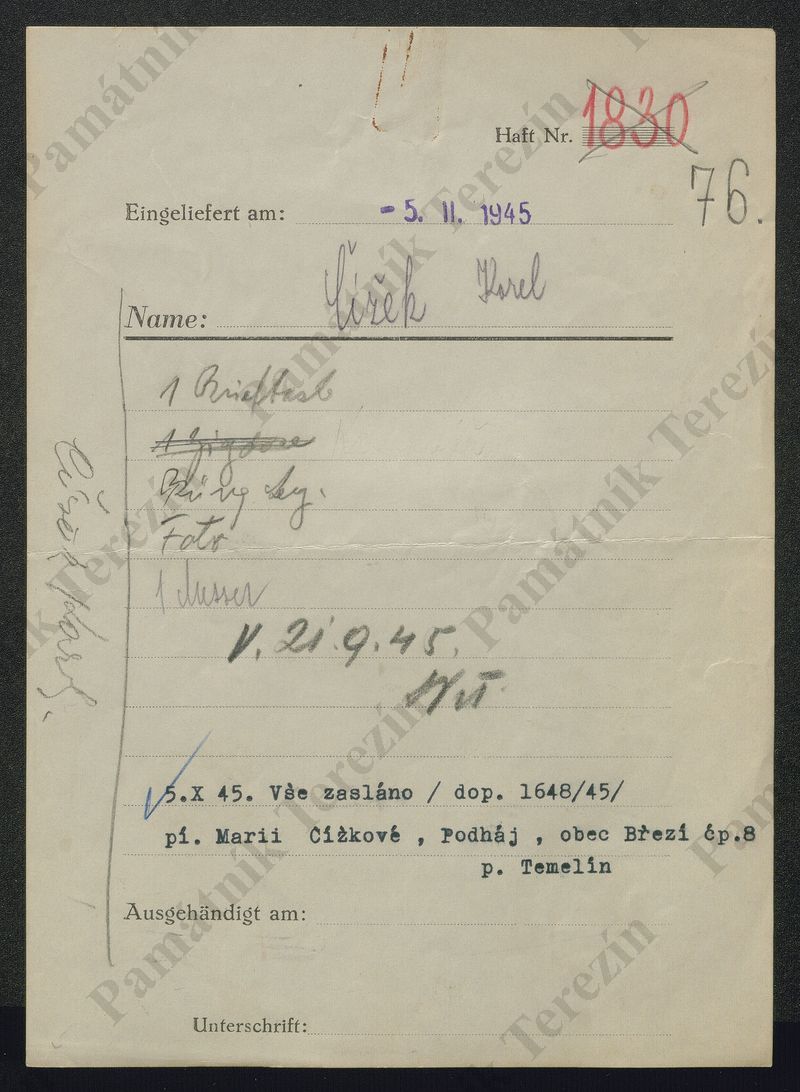 Haft Nr. 1830
76.
Eingeliefert am: - 5. II. 1945
Name: Čížek Karel
1 Brieftasch
1 Zigdose
Foto
1 Messer
V. 21.9.45.
5.X 45. Vše zasláno / dop. 1648/45/
pí. Marii Čížkové , Podháj , obec Březí čp.8
p. Temelín
Ausgehändigt am:
Unterschrift:
Čížek Karel.
Památník Terezín